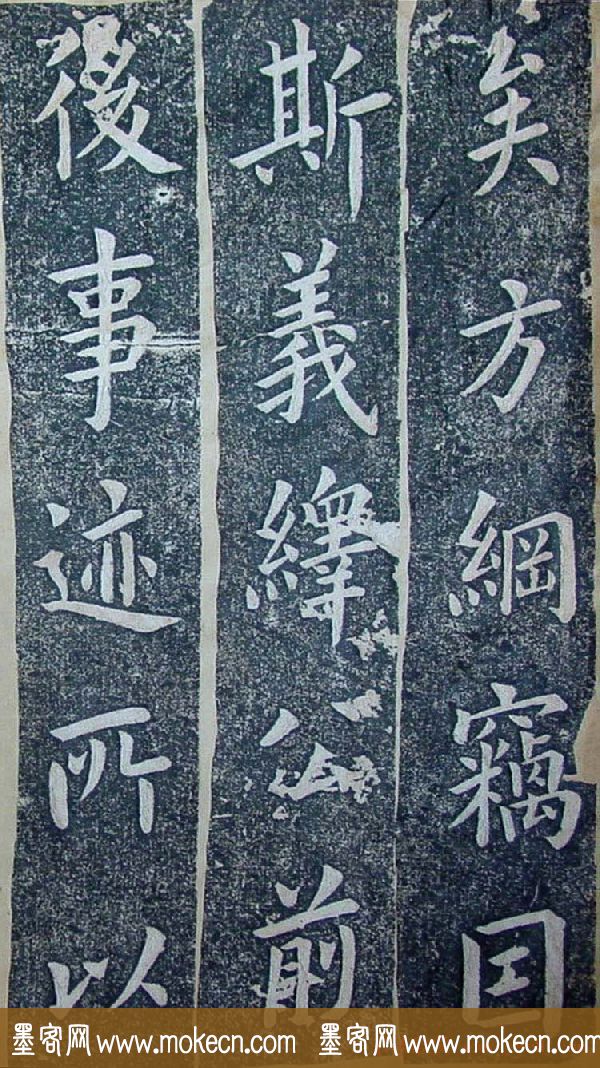 矣方綱竊因
斯義繹公前
後事迹所以
墨客网 www.mokecn.com 墨客网 www.mokecn.com